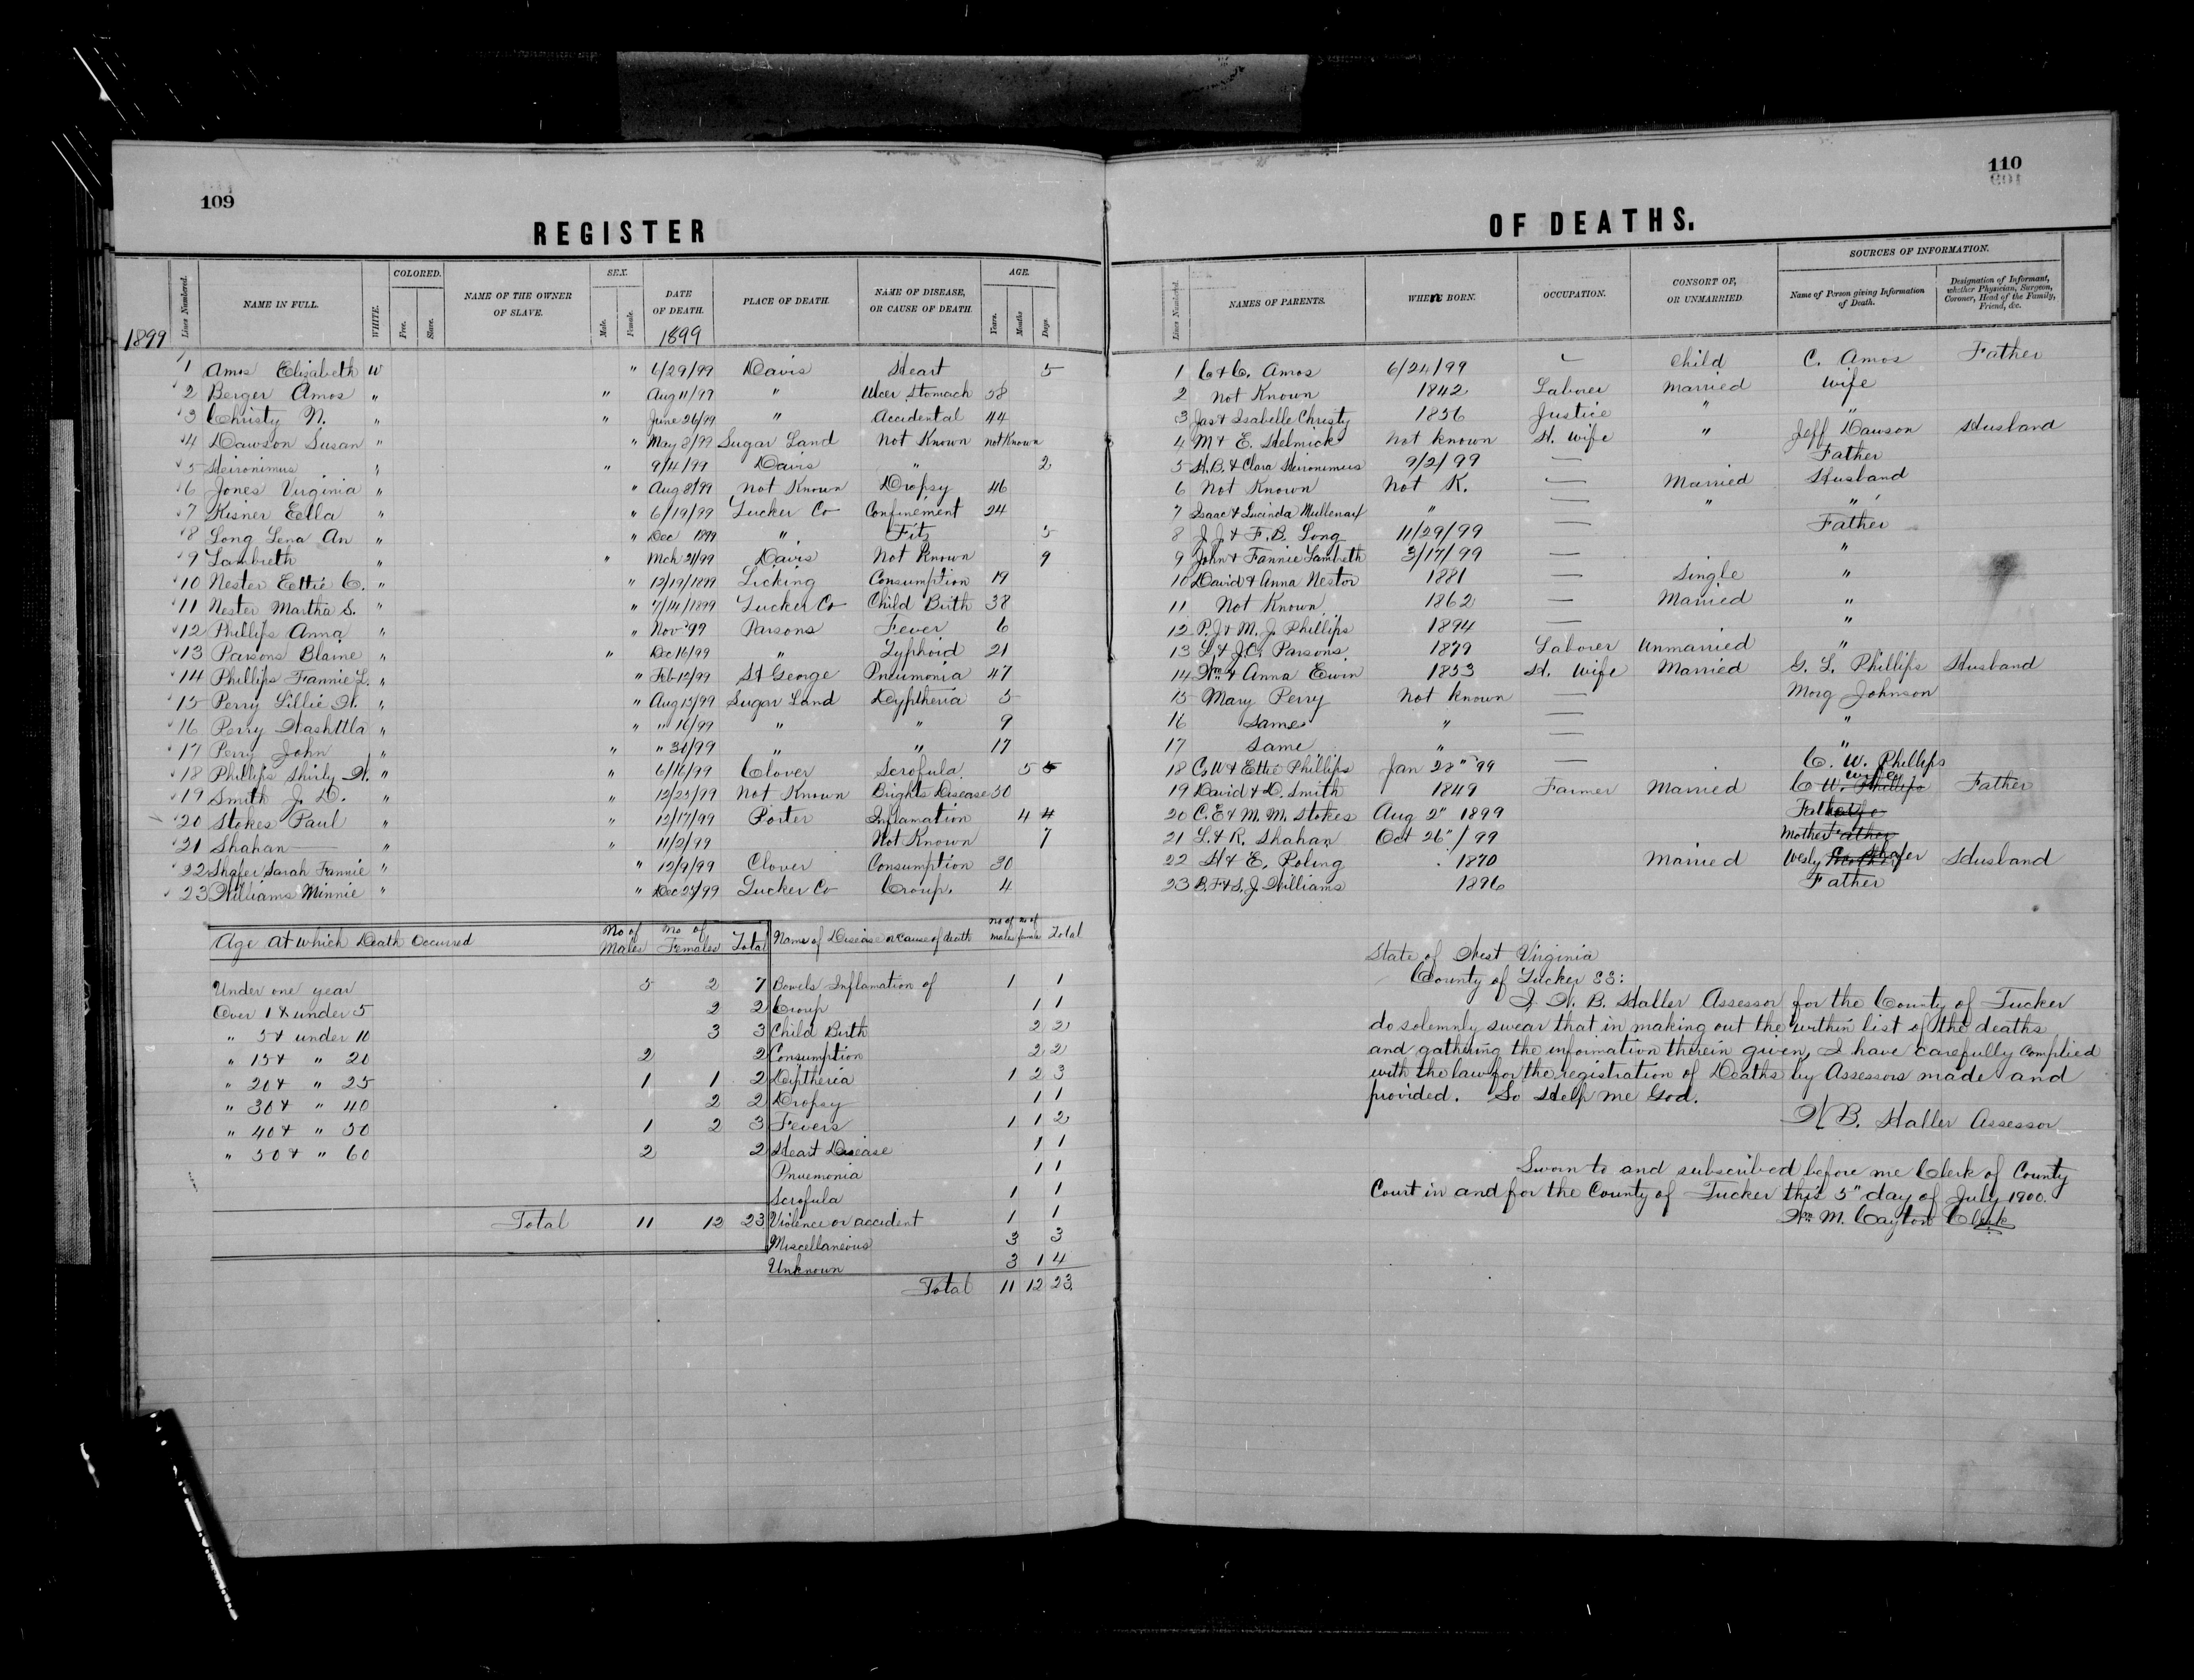 109
REGISTER
1899
Lines Numbered. NAME IN FULL. WHITE. COLORED. Free. Slave. NAME OF THE OWNER OF SLAVE. SEX. Male. Female. DATE OF DEATH. 1899 PLACE OF DEATH. NAME OF DISEASE, OR CAUSE OF DEATH. AGE. Years. Months Days.
1 Amos Elizabeth W " 6/29/99 Davis Heart 5
2 Berger Amos " " Aug 11/99 " Ulcer Stomach 58
3 Christy N. " " June 26/99 " Accidental 44
4 Dawson Susan " " May 8/99 Sugar Land Not Known not Known
5 Heironimus " " 9/4/99 Davis " 2
6 Jones Virginia " " Aug 8/99 Not Known Dropsy 46
7 Kisner Eella " " 6/19/99 Tucker Co Confinement 24
8 Long Lena An " " Dec 1899 " Fits 5
9 Lambeth " " Mch 21/99 Davis Not Known 9
10 Nester Eettie C. " " 12/19/1899 Licking Consumption 19
11 Nester Martha S. " " 7/14/1899 Tucker Co Child Birth 38
12 Phillips Anna " " Nov 99 Parsons Fever 6
13 Parsons Blaine " " Dec 16/99 " Typhoid 21
14 Phillips Fannie L. " " Feb 12/99 St George Pneumonia 47
15 Perry Lillie W. " " Aug 13/99 Sugar Land Dyptheria 5
16 Perry Washttla " " " 16/99 " " 9
17 Perry John " " " 31/99 " " 17
18 Phillips Shirly W. " " 6/16/99 Clover Scrofula 5 5
19 Smith J. D. " " 12/23/99 Not Known Brights Disease 50
20 Stokes Paul " " 12/17/99 Porter Inflamation 4 4
21 Shahan " " 11/2/99 Not Known 7
22 Shafer Sarah Fannie " " 12/9/99 Clover Consumption 30
23 Williams Minnie " " Dec 25/99 Tucker Co Croup. 4
Age at which Death Occurred No of Males No of Females Total
Under one year 5 2 7
Over 1 & under 5 2 2
" 5 & under 10 3 3
" 15 & " 20 2 2
" 20 & " 25 1 1 2
" 30 & " 40 2 2
" 40 & " 50 1 2 3
" 50 & " 60 2 2
Total 11 12 23
Name of Disease or cause of death No of males No of females Total
Bowels Inflamation of 1 1
Croup 1 1
Child Birth 2 2
Consumption 2 2
Diptheria 1 2 3
Dropsy 1 1
Fevers 1 1 2
Heart Disease 1 1
Pnuemonia 1 1
Scrofula 1 1
Violence or accident 1 1
Miscellaneous 3 3
Unknown 3 1 4
Total 11 12 23
110
OF DEATHS.
Lines Numbered. NAMES OF PARENTS. WHEN BORN. OCCUPATION. CONSORT OF, OR UNMARRIED SOURCES OF INFORMATION. Name of Person giving Information of Death. Designation of Informant, whether Physician, Surgeon, Coroner, Head of the Family, Friend, &c.
1 C & C. Amos 6/24/99 Child C. Amos Father
2 Not Known 1842 Laborer Married Wife
3 Jas & Isabelle Christy 1856 Justice " "
4 M & E. Helmick Not Known H. Wife " Jeff Dawson Husband
5 H. B. & Clara Heironimus 9/2/99 — Father
6 Not Known Not K. — Married Husband
7 Isaac & Lucinda Mullenax " — " "
8 J. J. & F. B. Long 11/29/99 — Father
9 John & Fannie Lambeth 3/17/99 — "
10 David & Anna Nestor 1881 — Single "
11 Not Known 1862 — Married "
12 P. J & M. J. Phillips 1894 — "
13 L & J. C. Parsons 1879 Laborer Unmarried "
14 Wm & Anna Ewin 1853 H. Wife Married G. L. Phillips Husband
15 Mary Perry Not Known — Morg Johnson
16 Same " — "
17 Same " "
18 C. W & Ettie Phillips Jan 28" 99 — C. W. Phillips
19 David & D. Smith 1849 Farmer Married C. W. Phillips wife Father
20 C. E & M. M. Stokes Aug 2" 1899 Father
21 L. & R. Shahan Oct 26"/99 Mother Father
22 H & E. Poling 1870 Married Wesly Shafer Husband
23 B. F & S. J. Williams 1896 Father
State of West Virginia
County of Tucker SS:
I W. B. Haller Assessor for the County of Tucker
do solemnly swear that in making out the within list of the deaths
and gathering the information therein given, I have carefully complied
with the law for the registration of Deaths by Assessors made and
provided. So Help me God.
W B. Haller Assessor
Sworn to and subscribed before me Clerk of County
Court in and for the County of Tucker this 5" day of July 1900.
Wm M. Cayton Clerk